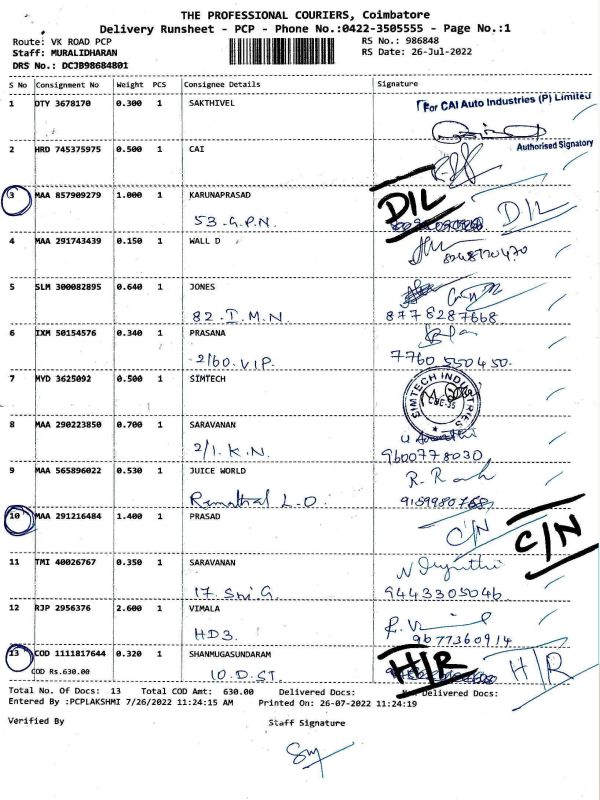 THE PROFESSIONAL COURIERS, Coimbatore
Delivery Runsheet - PCP - Phone No.:0422-3505555 - Page No.:1
Route: VK ROAD PCP RS No.: 986848
Staff: MURALIDHARAN RS Date: 26-Jul-2022
DRS No.: DCJB98684801
S No Consignment No Weight PCS Consignee Details Signature
1 DTY 3678170 0.300 1 SAKTHIVEL For CAI Auto Industries (P) Limited
Authorised Signatory
2 HRD 745375975 0.500 1 CAI
3 MAA 857909279 1.000 1 KARUNAPRASAD D/L D/L
53-G.P.N.
4 MAA 291743439 0.150 1 WALL D
8248720470
5 SLM 300082895 0.640 1 JONES
82. I.M.N. 8778287668
6 IXM 50154576 0.340 1 PRASANA
2/60. VIP. 7760 550450.
7 MYD 3625092 0.500 1 SIMTECH SIMTECH INDUSTRIES
8 MAA 290223850 0.700 1 SARAVANAN
2/1. K.N. 9600778030
9 MAA 565896022 0.530 1 JUICE WORLD
L.O 9159980768
10 MAA 291216484 1.400 1 PRASAD C/N C/N
11 TMI 40026767 0.350 1 SARAVANAN
17. Sri G. 9443305046
12 RJP 2956376 2.600 1 VIMALA
HD3. 9677360914
13 COD 1111817644 0.320 1 SHANMUGASUNDARAM H/R H/R
COD Rs.630.00 10. D. ST.
Total No. Of Docs: 13 Total COD Amt: 630.00 Delivered Docs: Delivered Docs:
Entered By :PCPLAKSHMI 7/26/2022 11:24:15 AM Printed On: 26-07-2022 11:24:19
Verified By Staff Signature